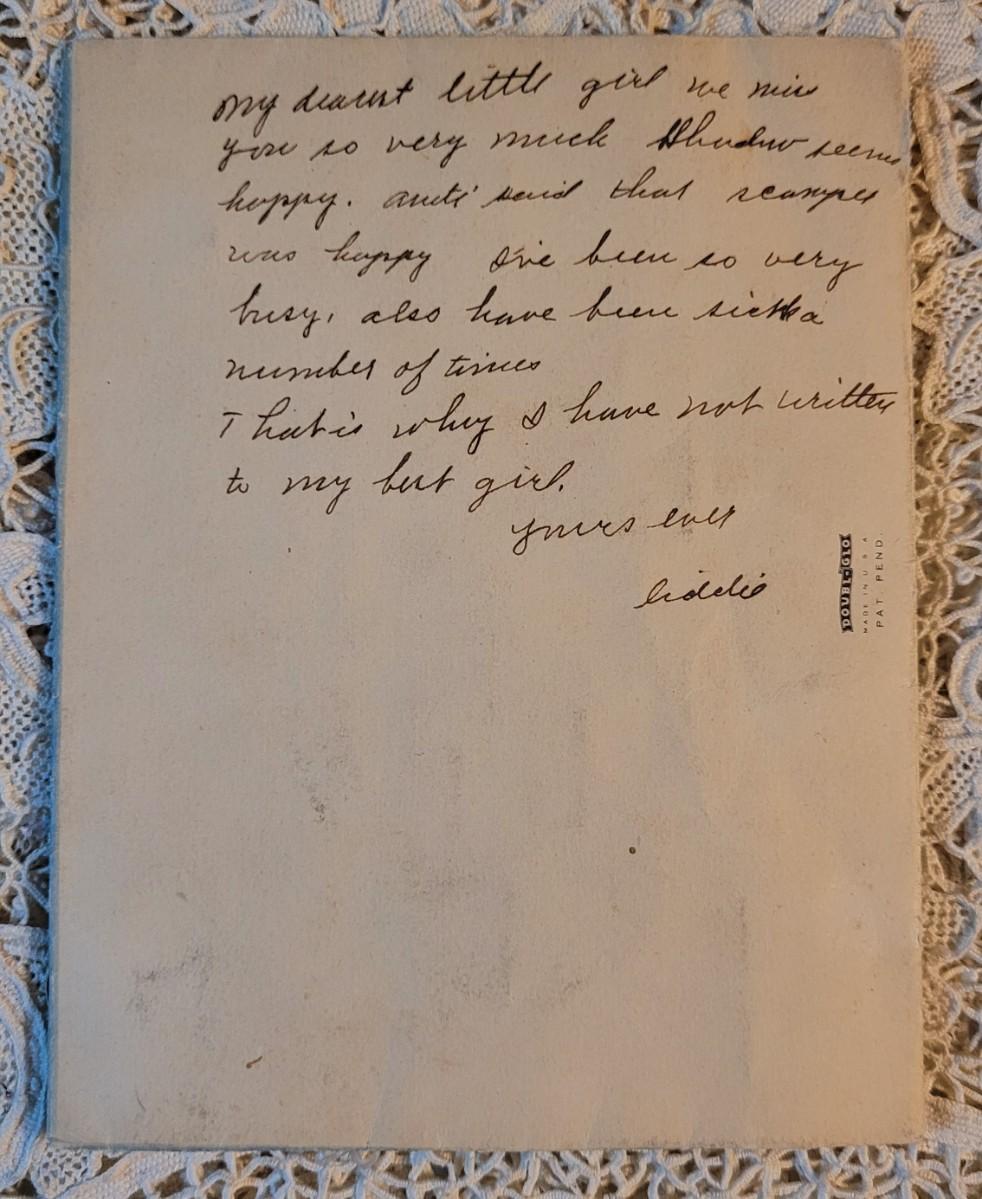 My dearest little girl we miss
you so very much Shadow seems
happy. auti said that scamper
was happy I've been so very
busy, also have been sick a
number of times
That is why I have not written
to my best girl.
yours ever
DOUBL-GLO
MADE IN U S A
PAT. PEND.